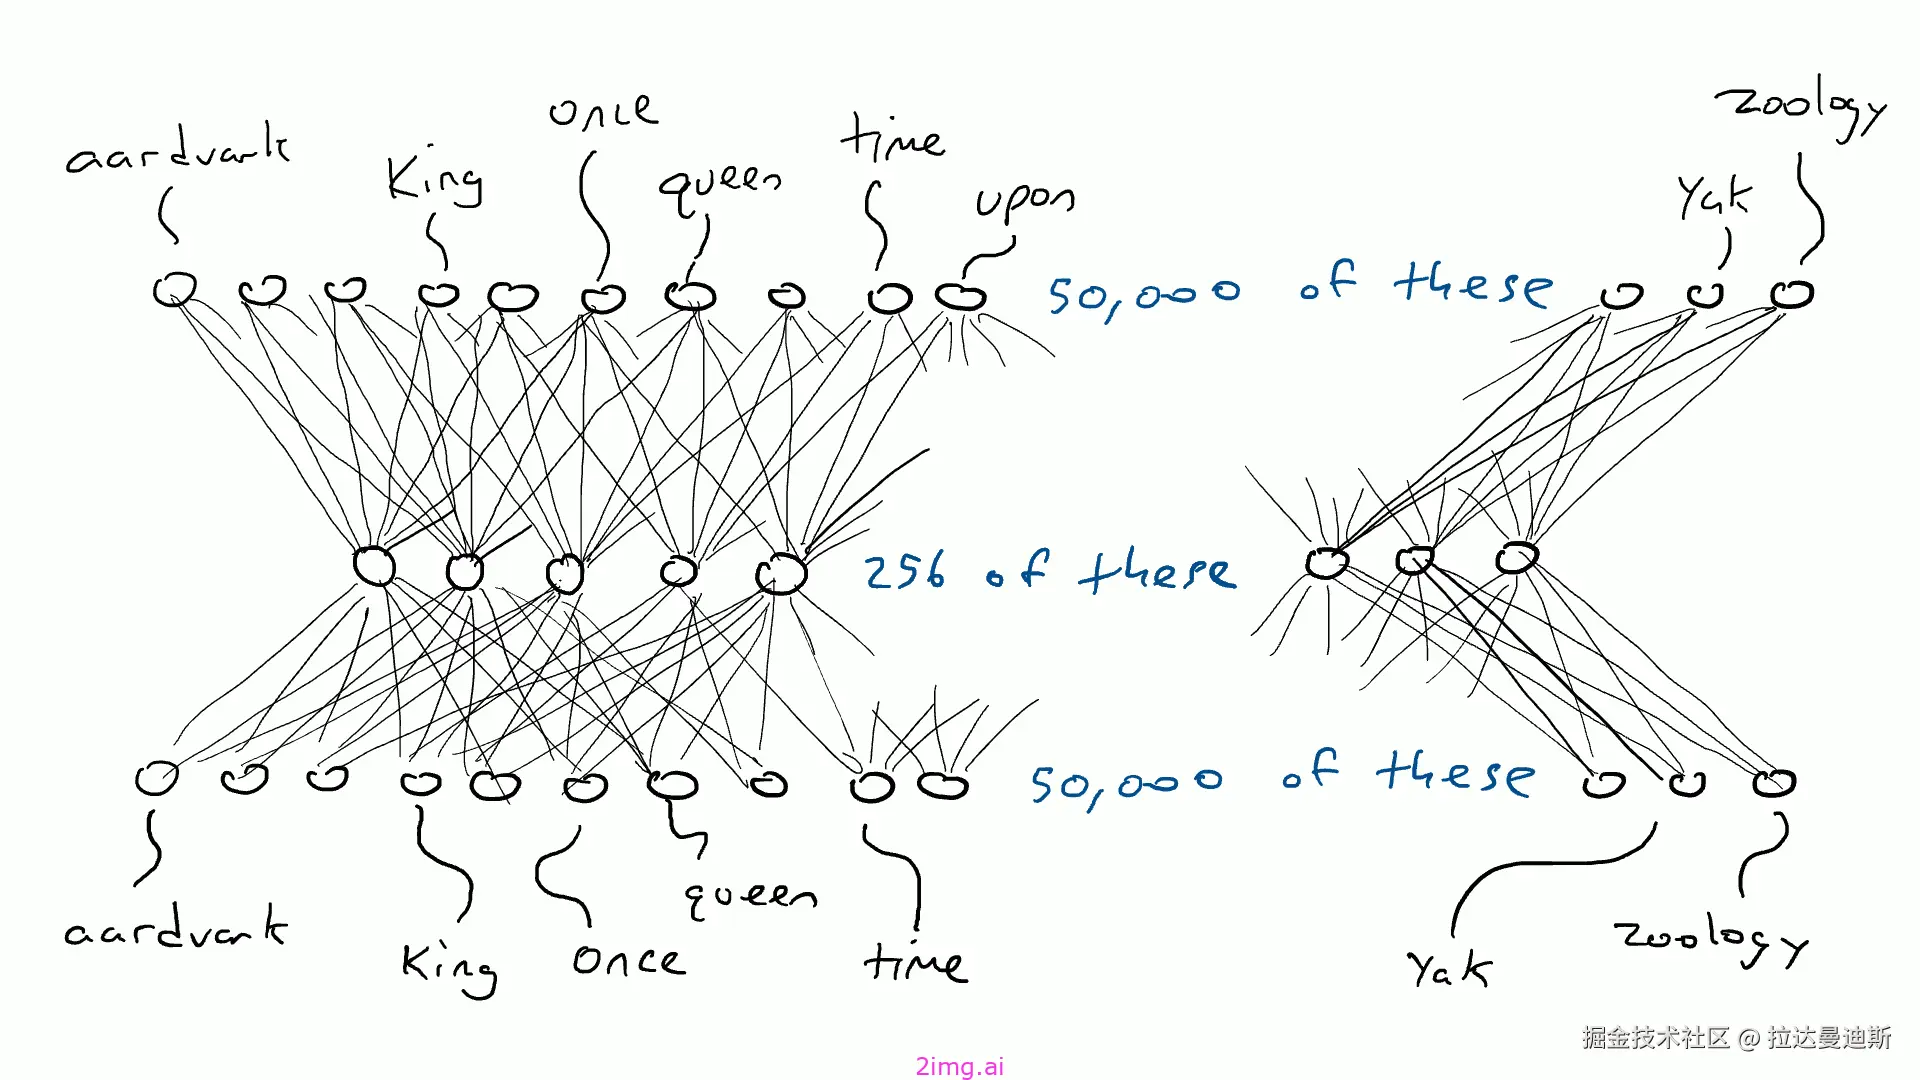 aardvark King once queen time upon Yak zoology
50,000 of these
256 of these
50,000 of these
aardvark King once queen time Yak zoology
掘金技术社区 @ 拉达曼迪斯
2img.ai